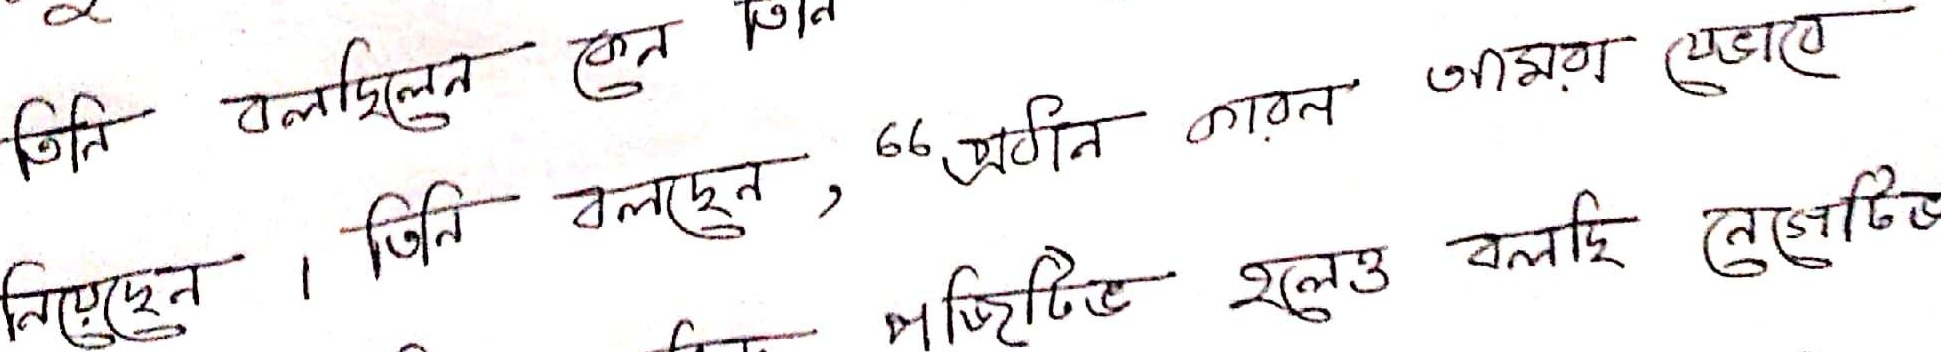 তিনি বলছিলেন কেন তিনি
নিয়েছেন। তিনি বলছেন, "প্রধান কারন আমরা যেভাবে
পজিটিভ হলেও বলছি নেগেটিভ